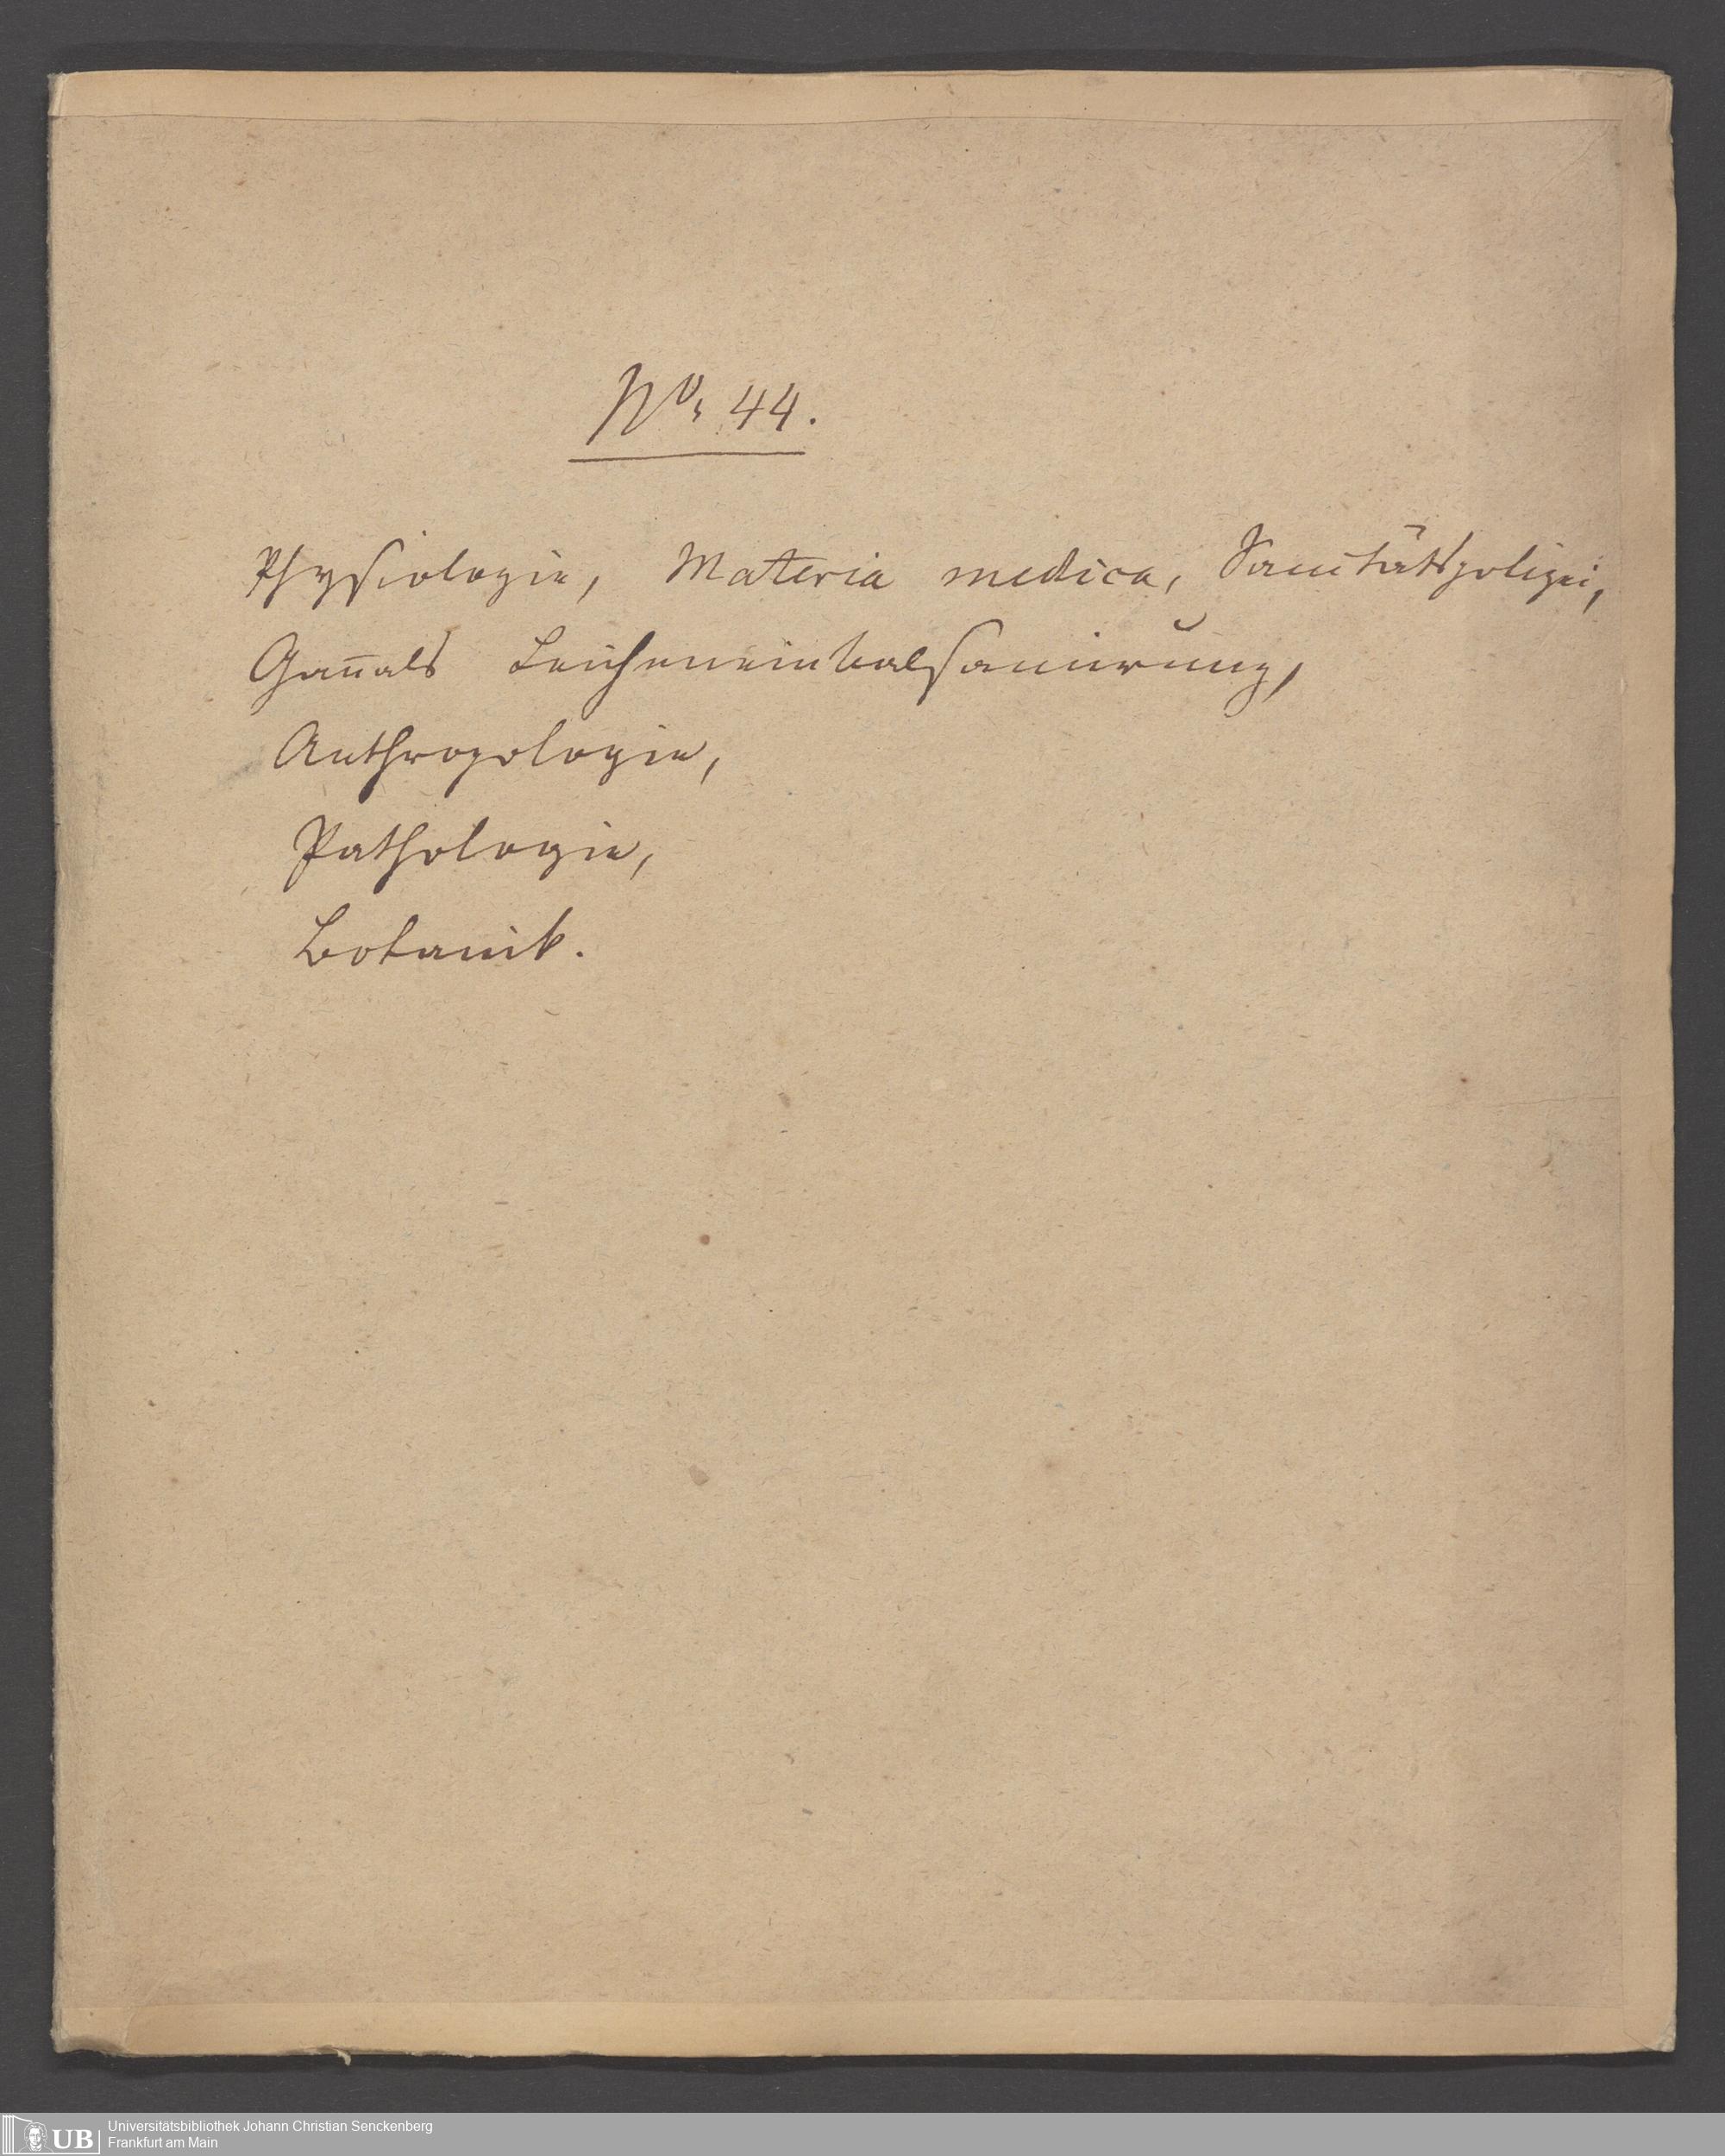 No. 44.
Physiologie, Materia medica, Sanitätspolizei,
Gan̄als Leicheneinbalsamirung,
Anthropologie,
Pathologie,
Botanik.
UB Universitätsbibliothek Johann Christian Senckenberg
Frankfurt am Main